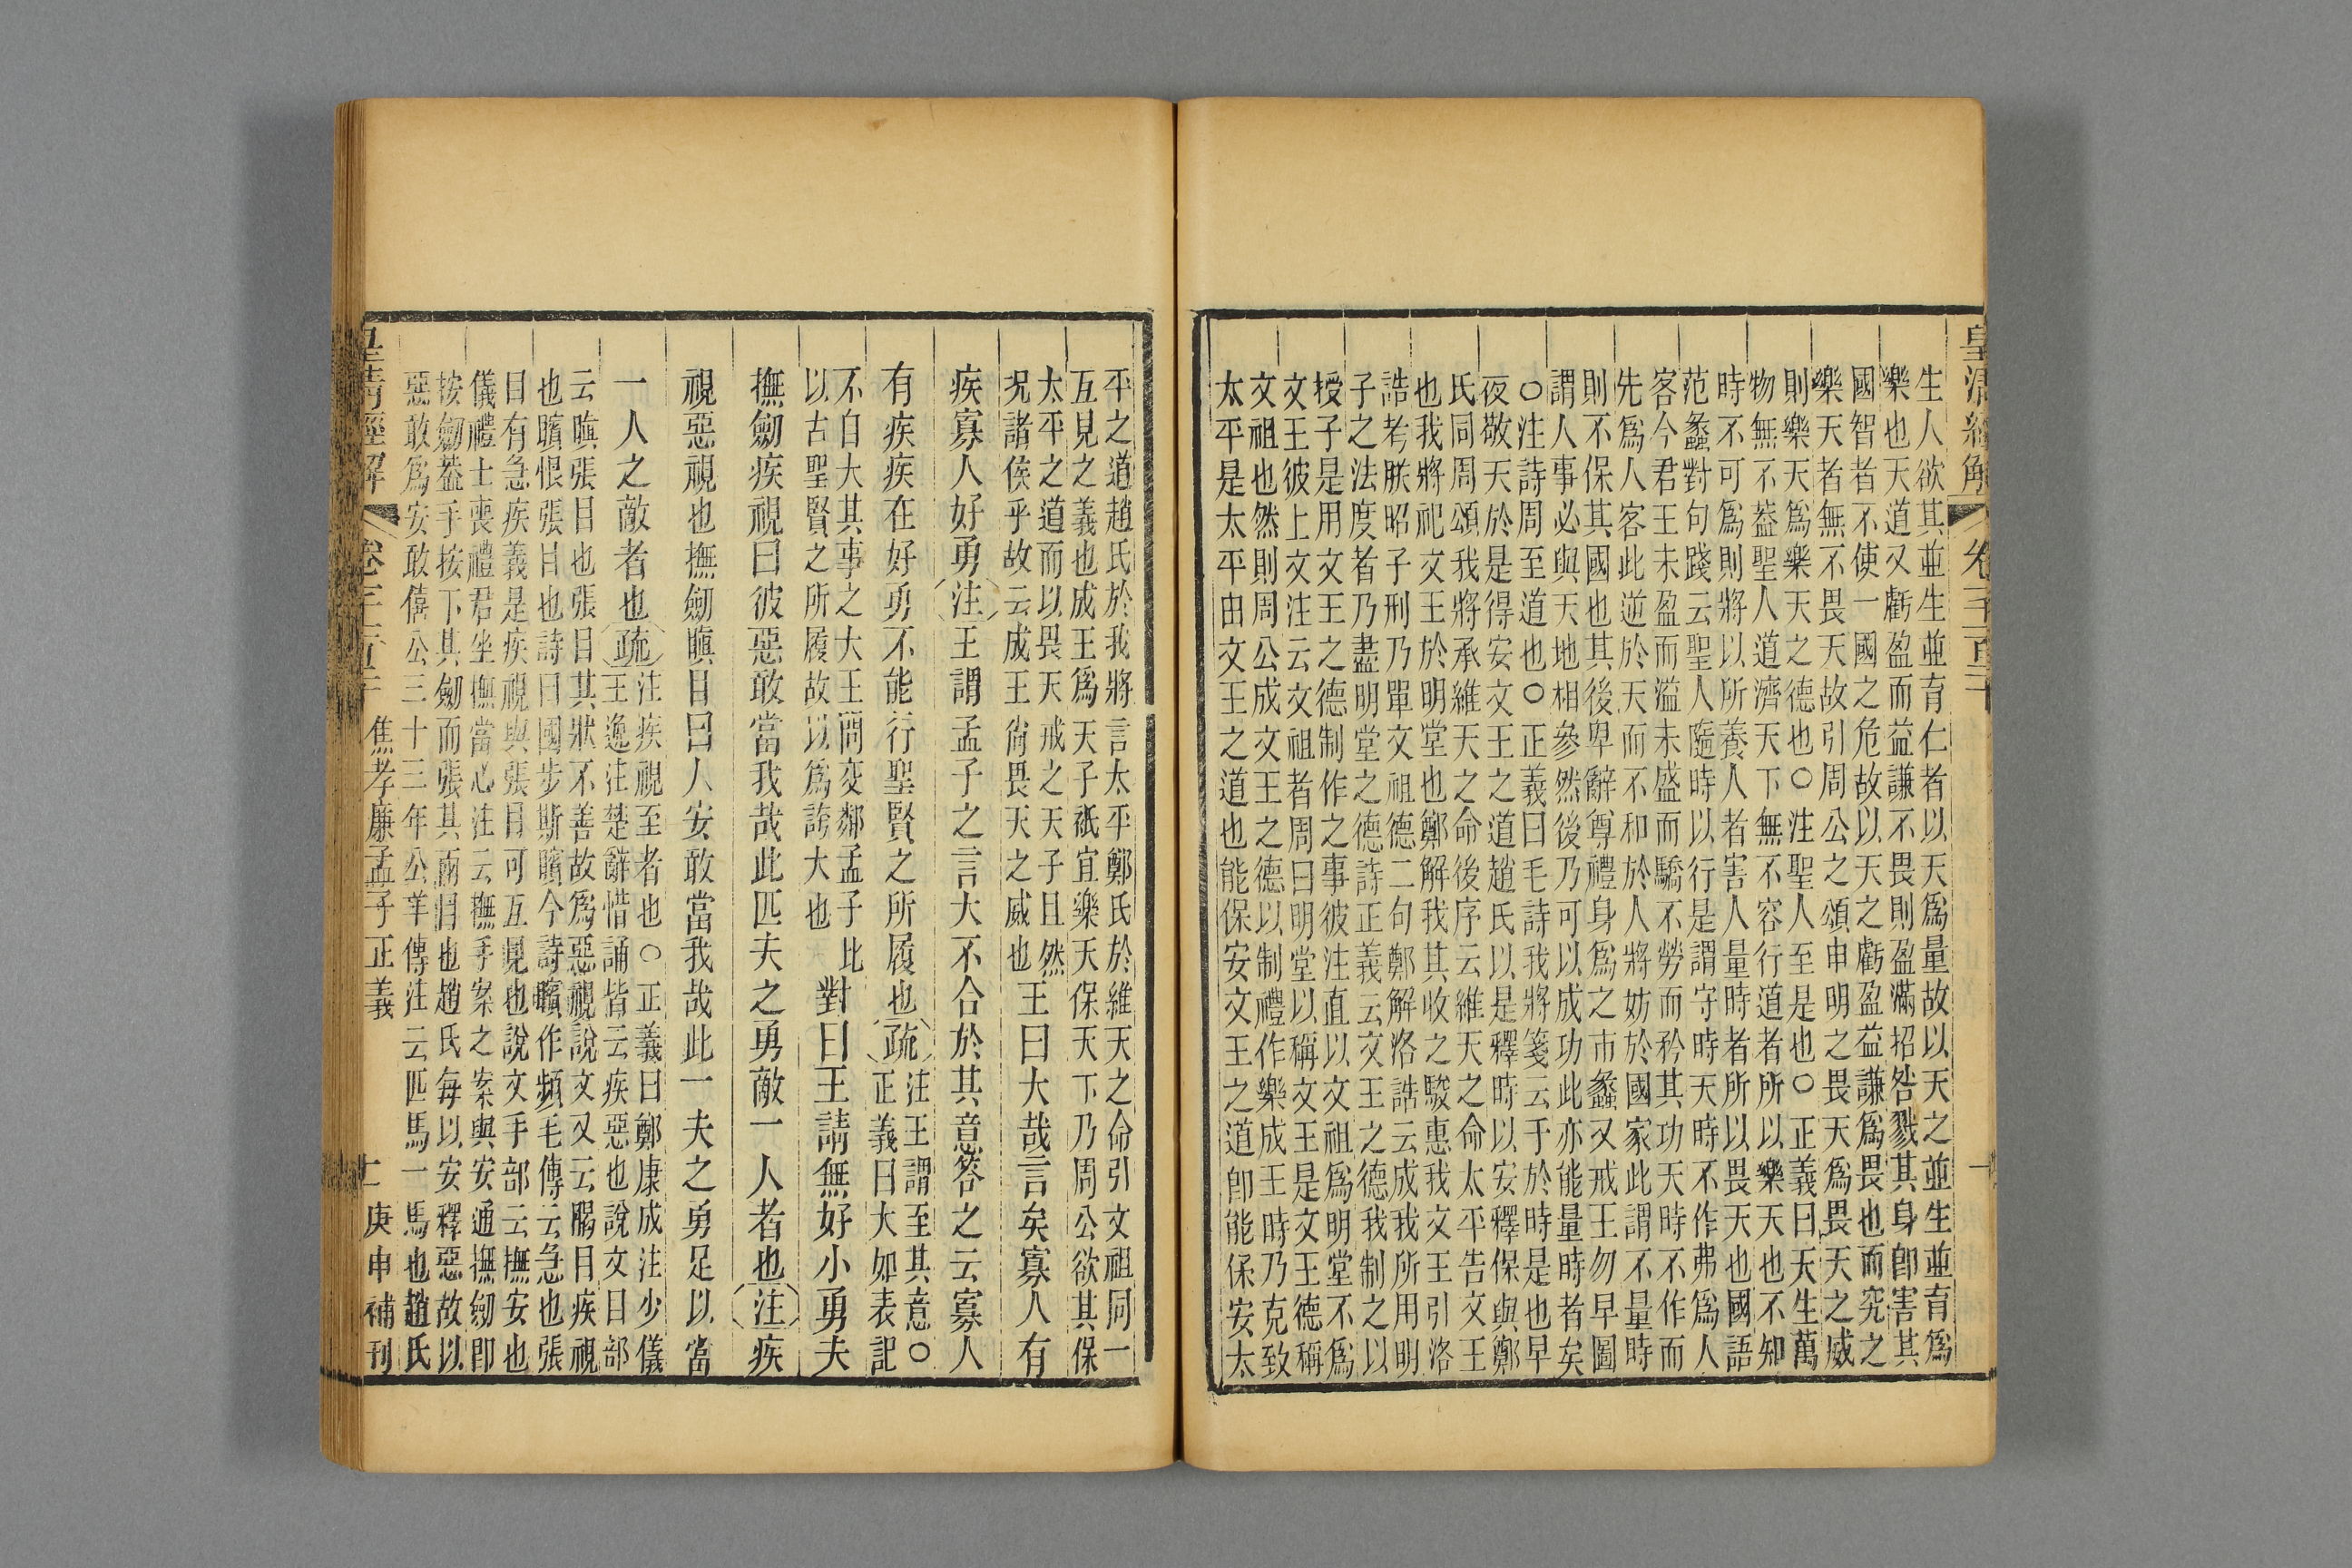 皇清經解 卷千百二十
生人欲其並生並育仁者以天爲量故以天之並生並育爲
樂也天道又虧盈而益謙不畏則盈滿招咎戮其身卽害其
國智者不使一國之危故以天之虧盈益謙爲畏也而究之
樂天者無不畏天故引周公之頌申明之畏天爲畏天之威
則樂天爲樂天之德也○注聖人至是也○正義曰天生萬
物無不葢聖人道濟天下無不容行道者所以樂天也不知
時不可爲則將以所養人者害人量時者所以畏天也國語
范蠡對句踐云聖人隨時以行是謂守時天時不作弗爲人
客今君王未盈而溢未盛而驕不勞而矜其功天時不作而
先爲人客此逆於天而不和於人將妨於國家此謂不量時
則不保其國也其後卑辭尊禮身爲之市蠡又戒王勿早圖
謂人事必與天地相參然後乃可以成功此亦能量時者矣
○注詩周至道也○正義曰毛詩我將箋云于於時是也早
夜敬天於是得安文王之道趙氏以是釋時以安釋保與鄭
氏同周頌我將承維天之命後序云維天之命太平告文王
也我將祀文王於明堂也鄭解我其收之駿惠我文王引洛
誥考朕昭子刑乃單文祖德二句鄭解洛誥云成我所用明
子之法度者乃盡明堂之德詩正義云文王之德我制之以
授子是用文王之德制作之事彼注直以文祖爲明堂不爲
文王彼上文注云文祖者周曰明堂以稱文王是文王德稱
文祖也然則周公成文王之德以制禮作樂成王時乃克致
太平是太平由文王之道也能保安文王之道卽能保安太
平之道趙氏於我將言太平鄭氏於維天之命引文祖同一
互見之義也成王爲天子祇宜樂天保天下乃周公欲其保
太平之道而以畏天戒之天子且然
况諸侯乎故云成王尙畏天之威也
王曰大哉言矣寡人有
疾寡人好勇注王謂孟子之言大不合於其意答之云寡人
有疾疾在好勇不能行聖賢之所履也疏
注王謂至其意○
正義曰大如表記
不自大其事之大王問交鄰孟子比
以古聖賢之所履故以爲誇大也
對曰王請無好小勇夫
撫劒疾視曰彼惡敢當我哉此匹夫之勇敵一人者也注疾
視惡視也撫劒瞋目曰人安敢當我哉此一夫之勇足以當
一人之敵者也疏
注疾視至者也○正義曰鄭康成注少儀
王逸注楚辭惜誦皆云疾惡也說文目部
云瞋張目也張目其狀不善故爲惡視說文又云䀶目疾視
也矉恨張目也詩曰國步斯矉今詩矉作頻毛傳云急也張
目有急疾義是疾視與張目可互見也說文手部云撫安也
儀禮士喪禮君坐撫當心注云撫手案之案與安通撫劒卽
按劒葢手按下其劒而張其兩目也趙氏每以安釋惡故以
惡敢爲安敢僖公三十三年公羊傳注云匹馬一馬也趙氏
皇清經解 卷 焦孝廉孟子正義 庚申補刊